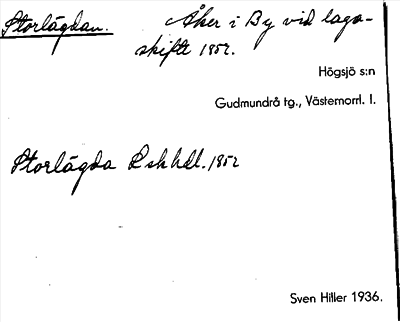 Storlägdan. Åker i By vid laga-
skifte 1852.
Högsjö s:n
Gudmundrå tg., Västernorrl. l.
Storlägda Lskhdl. 1852
Sven Hiller 1936.